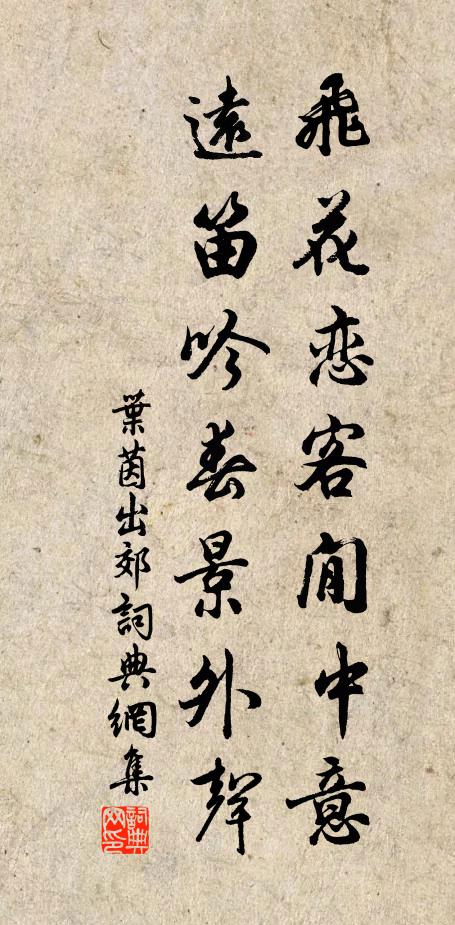 飛花恋客閒中意
遠笛吟春景外聲
葉茵出郊詞典網集
詞典網印